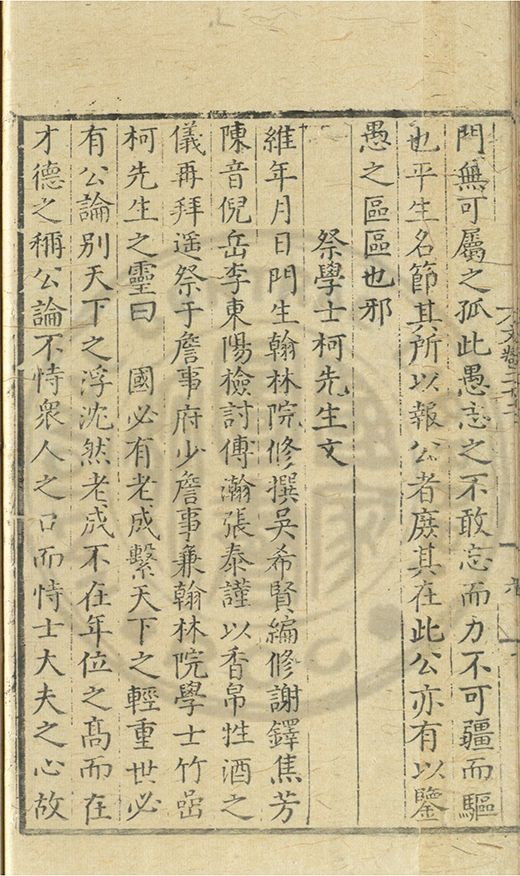 門無可屬之孤此愚忘之不敢忘而力不可疆而驅
也平生名節其所以報公者庶其在此公亦有以鑒
愚之區區也邪
祭學士柯先生文
維年月日門生翰林院修撰吳希賢編修謝鐸焦芳
陳音倪岳李東陽檢討傅瀚張泰謹以香帛牲酒之
儀再拜遥祭于詹事府少詹事兼翰林院學士竹嵒
柯先生之靈曰 國必有老成繫天下之輕重世必
有公論别天下之浮沈然老成不在年位之髙而在
才德之稱公論不恃衆人之口而恃士大夫之心故